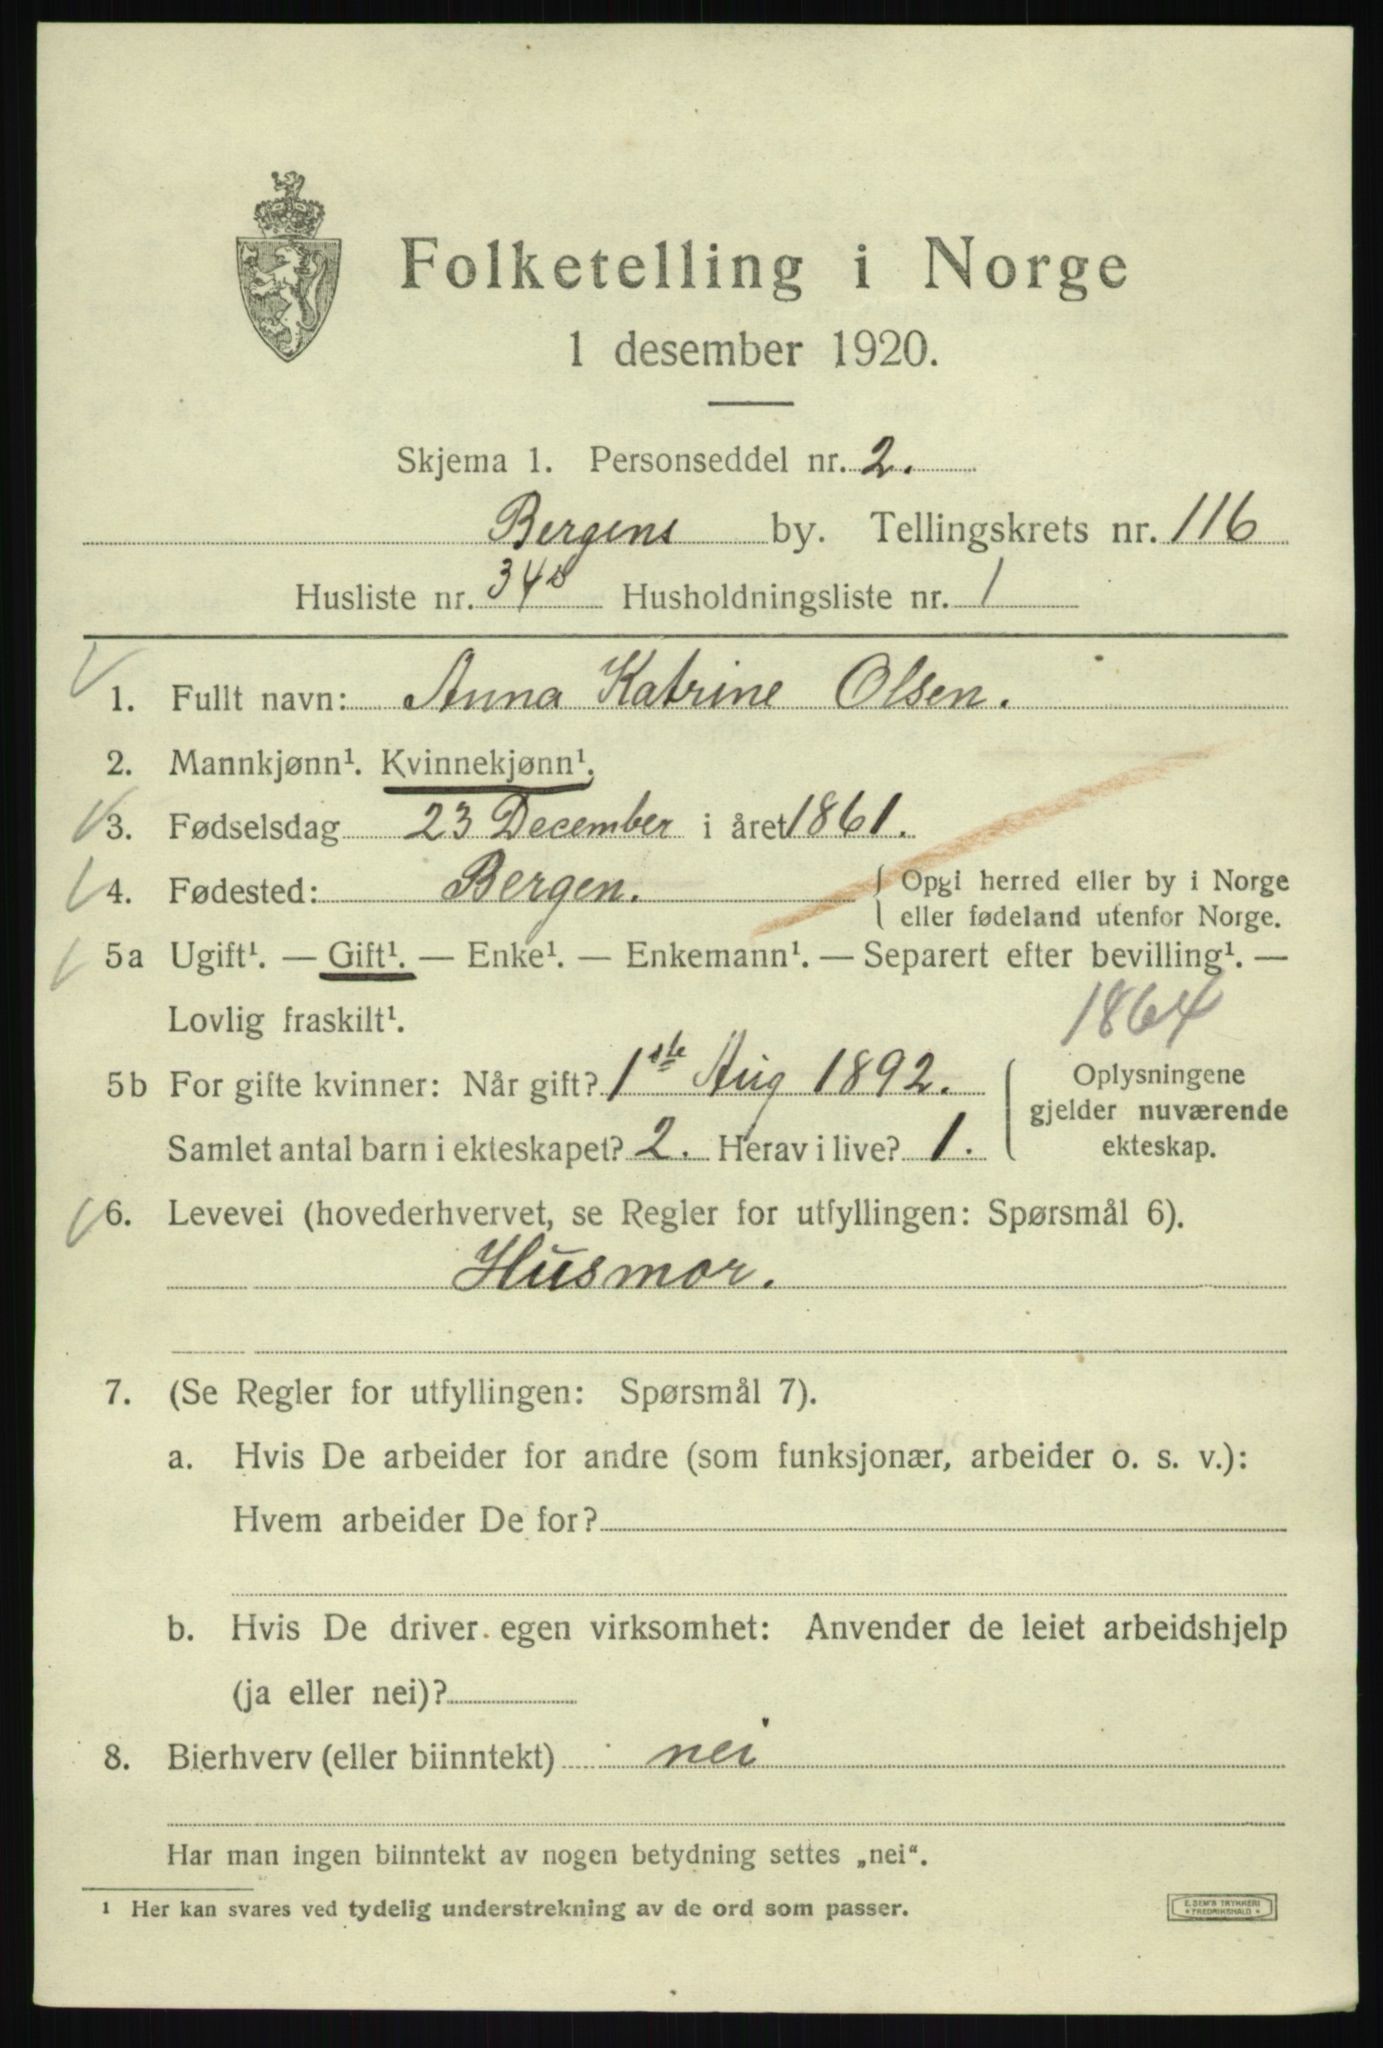 Folketelling i Norge
1 desember 1920.
Skjema 1. Personseddel nr. 2.
Bergens by. Tellingskrets nr. 116
Husliste nr. 34 Husholdningsliste nr. 1
1. Fullt navn: Anna Katrine Olsen.
2. Mannkjønn¹. Kvinnekjønn¹.
3. Fødselsdag 23 December i året 1861.
4. Fødested: Bergen. { Opgi herred eller by i Norge
eller fødeland utenfor Norge.
5a Ugift¹. — Gift¹. — Enke¹. — Enkemann¹. — Separert efter bevilling¹. —
Lovlig fraskilt¹.
1864
5b For gifte kvinner: Når gift? 1ste Aug 1892.
Samlet antal barn i ekteskapet? 2. Herav i live? 1.
Oplysningene
gjelder nuværende
ekteskap.
6. Levevei (hovederhvervet, se Regler for utfyllingen: Spørsmål 6).
Husmor.
7. (Se Regler for utfyllingen: Spørsmål 7).
a. Hvis De arbeider for andre (som funksjonær, arbeider o. s. v.):
Hvem arbeider De for?
b. Hvis De driver egen virksomhet: Anvender de leiet arbeidshjelp
(ja eller nei)?
8. Bierhverv (eller biinntekt) nei
Har man ingen biinntekt av nogen betydning settes „nei“.
¹ Her kan svares ved tydelig understrekning av de ord som passer.
E. SEM'S TRYKKERI
FREDRIKSHALD